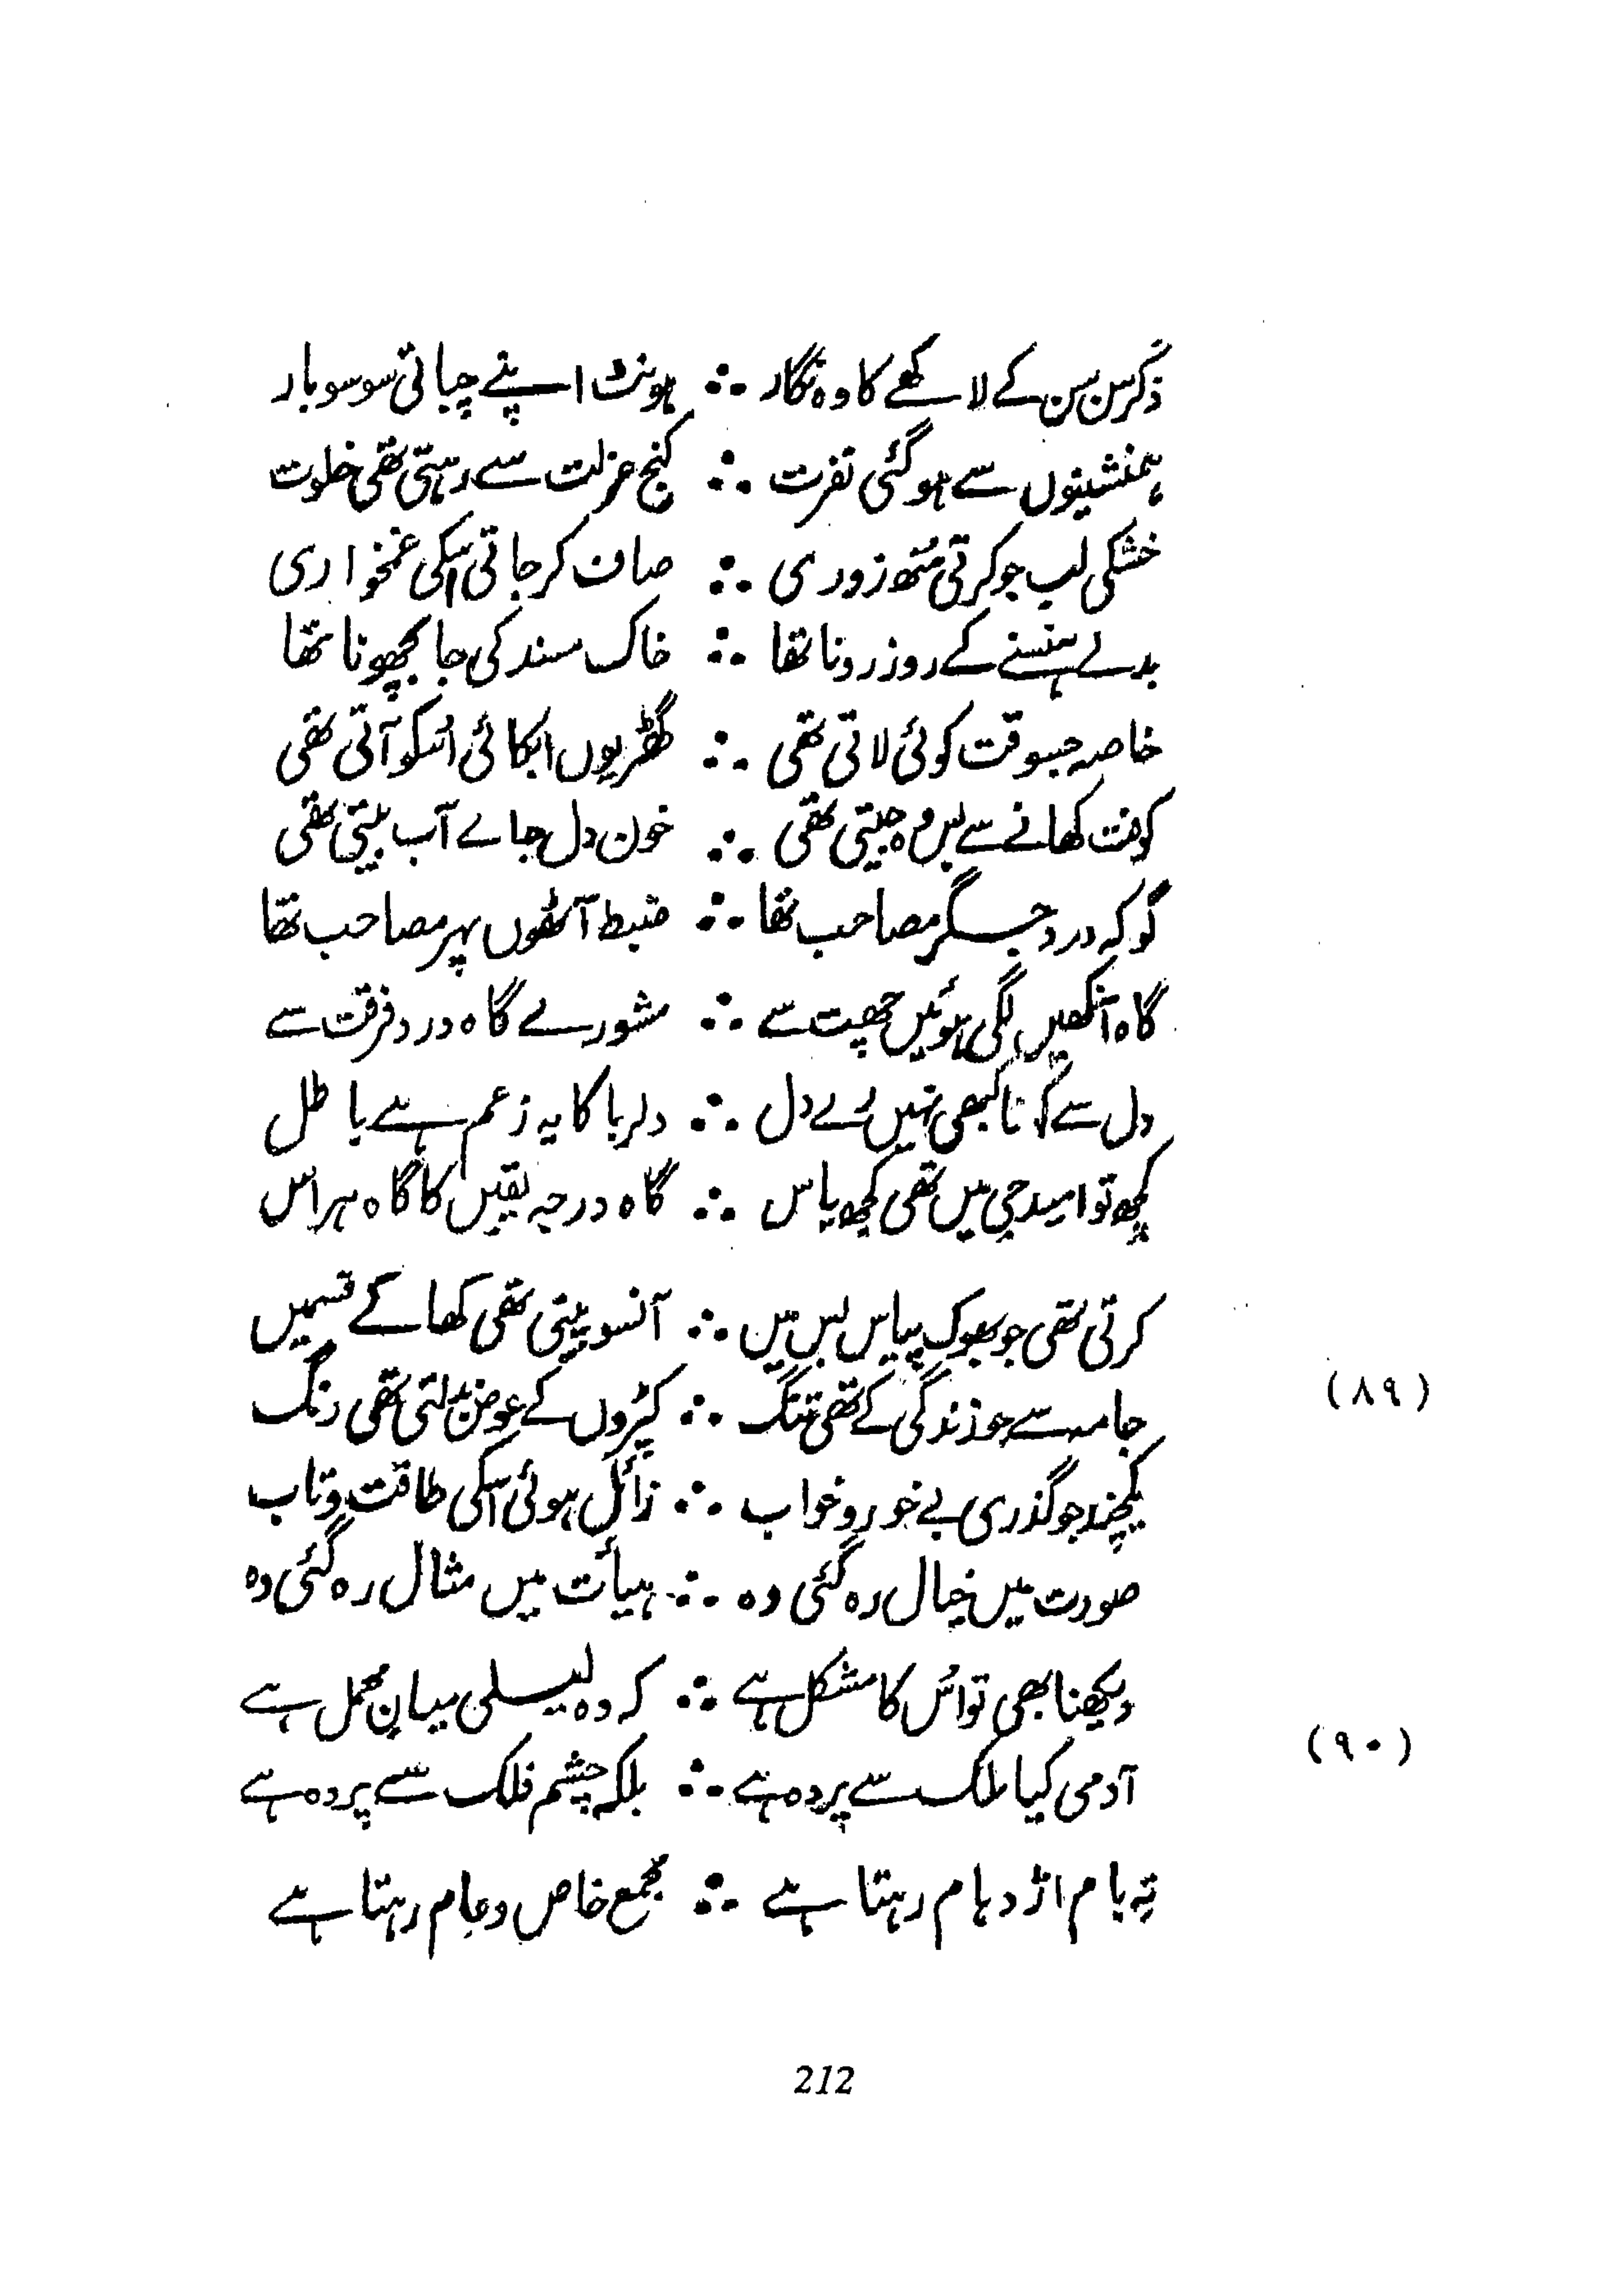 ذکر سن سن کے لاکھے کا وہ نگار ∴ ہونٹ اپنے چباتی سو سو بار
ہمنشینوں سے ہو گئی نفرت ∴ کنج عزلت سے رہتی تھی خلوت
خشکی لب جو کرتی منھ زوری ∴ صاف کر جاتی اسکی غمخواری
بدلے ہنسنے کے روز رونا تھا ∴ خاک مسند کی جا بچھونا تھا
خاصہ جسوقت کوئی لاتی تھی ∴ گھڑیوں ابکائی اُسکو آتی تھی
کوفت کھانے سے بس وہ جیتی تھی ∴ خون دل جاے آب پیتی تھی
گو کہ درد جگر مصاحب تھا ∴ ضبط آٹھوں پہر مصاحب تھا
گاہ آنکھیں لگی ہوئیں چھت سے ∴ مشورے گاہ درد فرقت سے
دل سے کہنا کبھی نہیں اے دل ∴ دلربا کا یہ زعم ہے باطل
کچھ تو امید جی میں تھی کچھ یاس ∴ گاہ درجہ یقیں کا گاہ ہراس
کرتی تھی جو بھوک پیاس بس میں ∴ آنسو پیتی تھی کھا کے قسمیں
(۸۹)
جامہ سے جو زندگی کے تھی تنگ ∴ کپڑوں کے عوض بدلتی تھی رنگ
یکچند جو گذری بے خور و خواب ∴ زائل ہوئی اسکی طاقت و تاب
صورت میں خیال رہ گئی وہ ∴ ہیأت میں مثال رہ گئی وہ
دیکھنا بھی تو اُس کا مشکل ہے ∴ کہ وہ لیلی میانِ محمل ہے
(۹۰)
آدمی کیا ملک سے پردہ ہے ∴ بلکہ چشم فلک سے پردہ ہے
تہ بام اژدہام رہتا ہے ∴ مجمع خاص و عام رہتا ہے
212